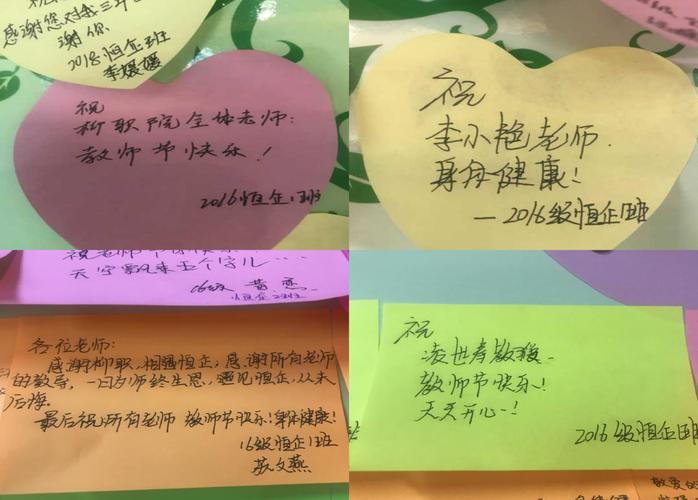 感谢您对我三年
谢你
2018恒企班
李媛媛
祝
柳职院全体老师:
教师节快乐!
2016恒企1班
祝
李小艳老师.
身体健康!
—2016级恒企1班
天空飘来五个字儿....
16级 黄恋
恒企2班
各位老师:
感谢柳职,相遇恒企,感谢所有老师
的教导,一日为师终生恩,遇见恒企,从未
后悔.
最后祝所有老师 教师节快乐!身体健康!
16级恒企1班
苏文燕
祝
凌世寿教授.
教师节快乐!
天天开心~!
2016级恒企1班
敬爱的